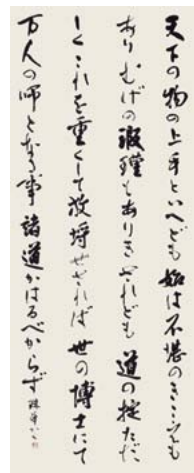 天下の物の上手といへども 始は不堪のきこえも
あり むげの瑕瑾もありき されども 道の掟ただ
しくこれを重くして放埒せざれば 世の博士にて
万人の師となる事 諸道かはるべからず